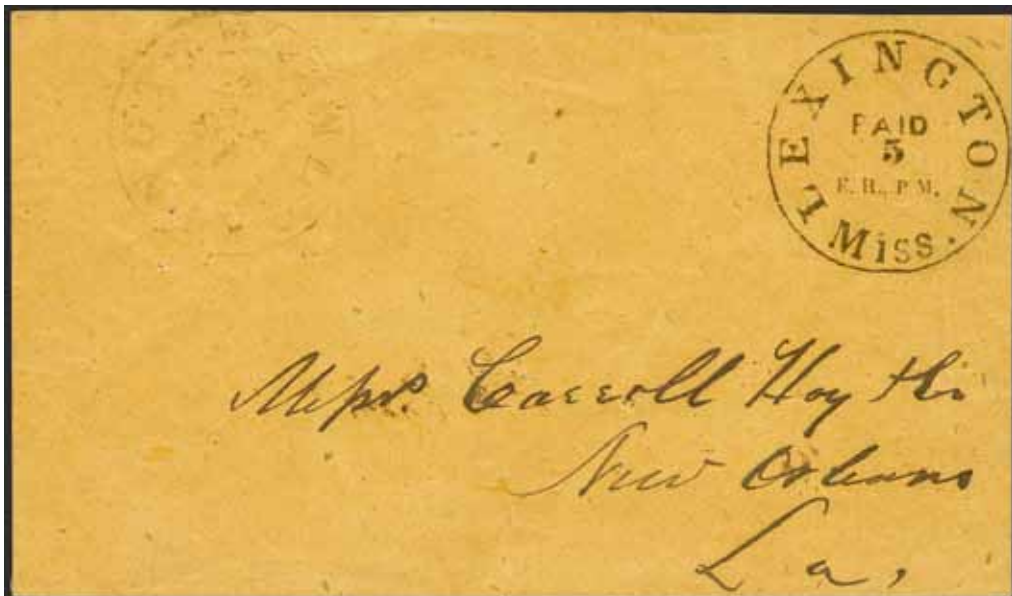 LEXINGTON
PAID
5
E. H., P M.
Miss.
Messrs. Carroll Hoy & Co
New Orleans
La.